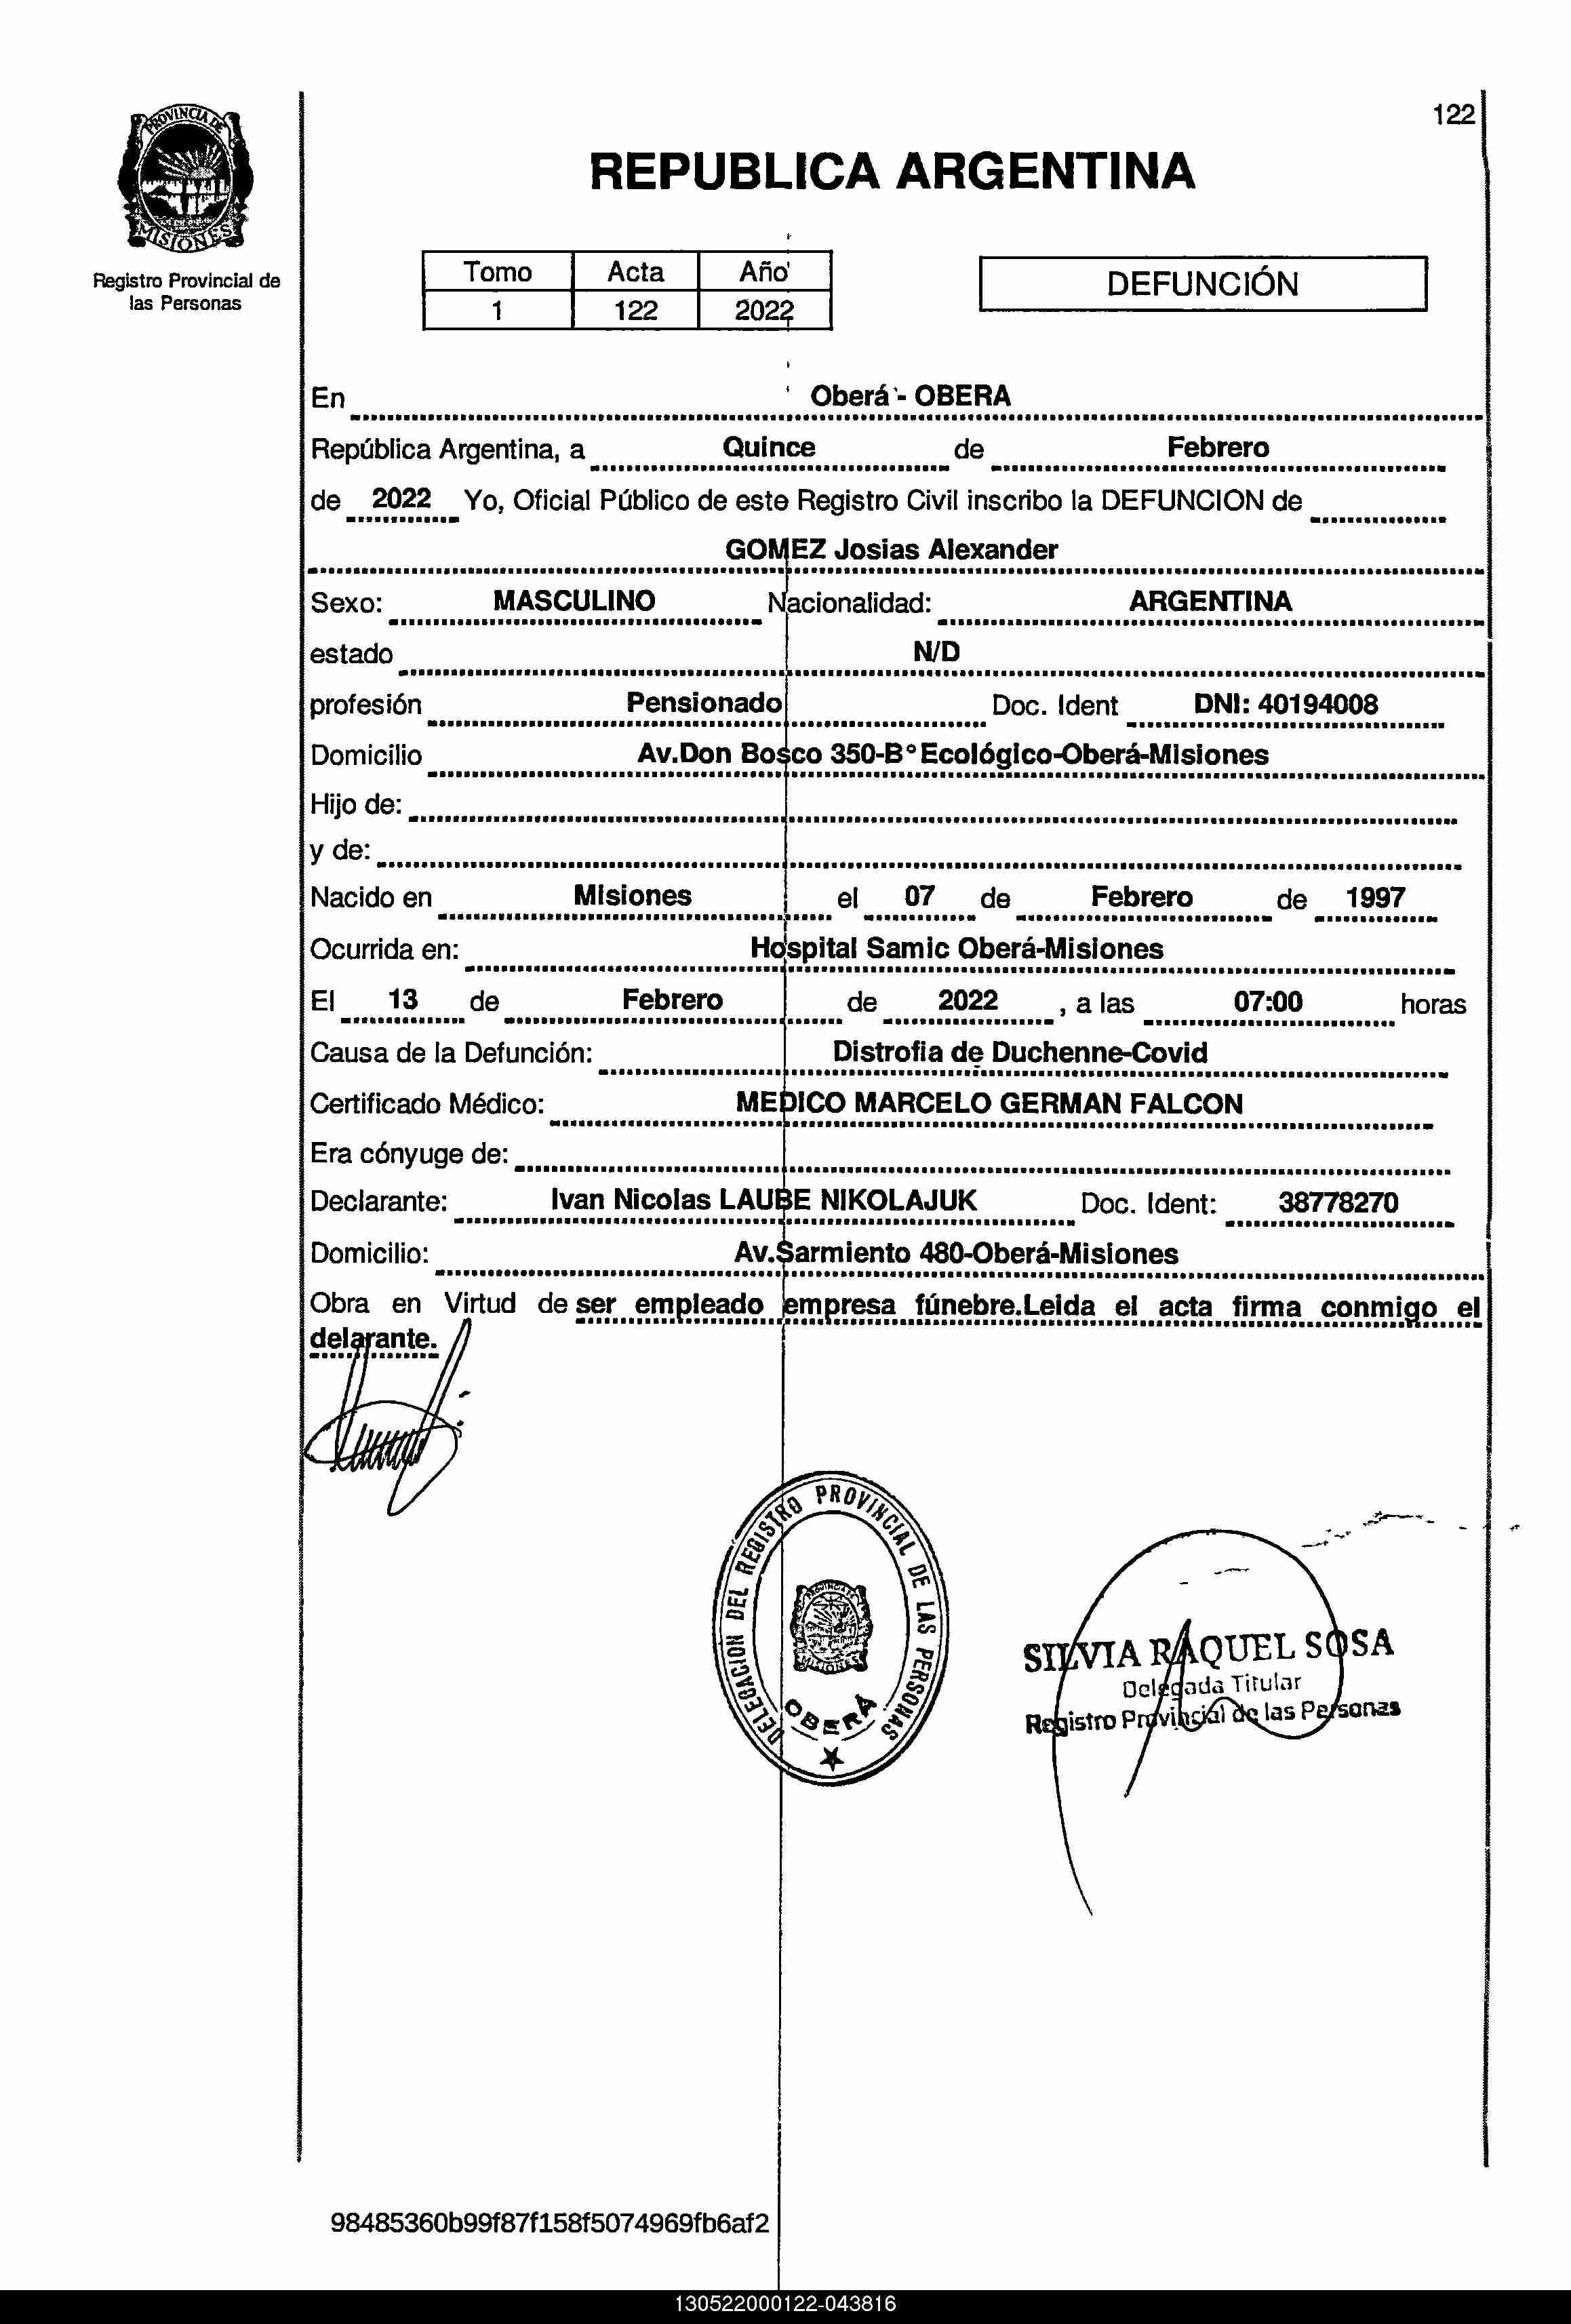 122
PROVINCIA DE
MISIONES
Registro Provincial de
las Personas
REPUBLICA ARGENTINA
Tomo Acta Año
1 122 2022
DEFUNCIÓN
En Oberá - OBERA
República Argentina, a Quince de Febrero
de 2022 Yo, Oficial Público de este Registro Civil inscribo la DEFUNCION de
GOMEZ Josias Alexander
Sexo: MASCULINO Nacionalidad: ARGENTINA
estado N/D
profesión Pensionado Doc. Ident DNI: 40194008
Domicilio Av.Don Bosco 350-B° Ecológico-Oberá-Misiones
Hijo de:
y de:
Nacido en Misiones el 07 de Febrero de 1997
Ocurrida en: Hospital Samic Oberá-Misiones
El 13 de Febrero de 2022 , a las 07:00 horas
Causa de la Defunción: Distrofia de Duchenne-Covid
Certificado Médico: MEDICO MARCELO GERMAN FALCON
Era cónyuge de:
Declarante: Ivan Nicolas LAUBE NIKOLAJUK Doc. Ident: 38778270
Domicilio: Av.Sarmiento 480-Oberá-Misiones
Obra en Virtud de ser empleado empresa fúnebre.Leida el acta firma conmigo el
delarante.
DELEGACION DEL REGISTRO PROVINCIAL DE LAS PERSONAS
PROVINCIA DE
MISIONES
OBERÁ
SILVIA RAQUEL SOSA
Delegada Titular
Registro Provincial de las Personas
98485360b99f87f158f5074969fb6af2
130522000122-043816